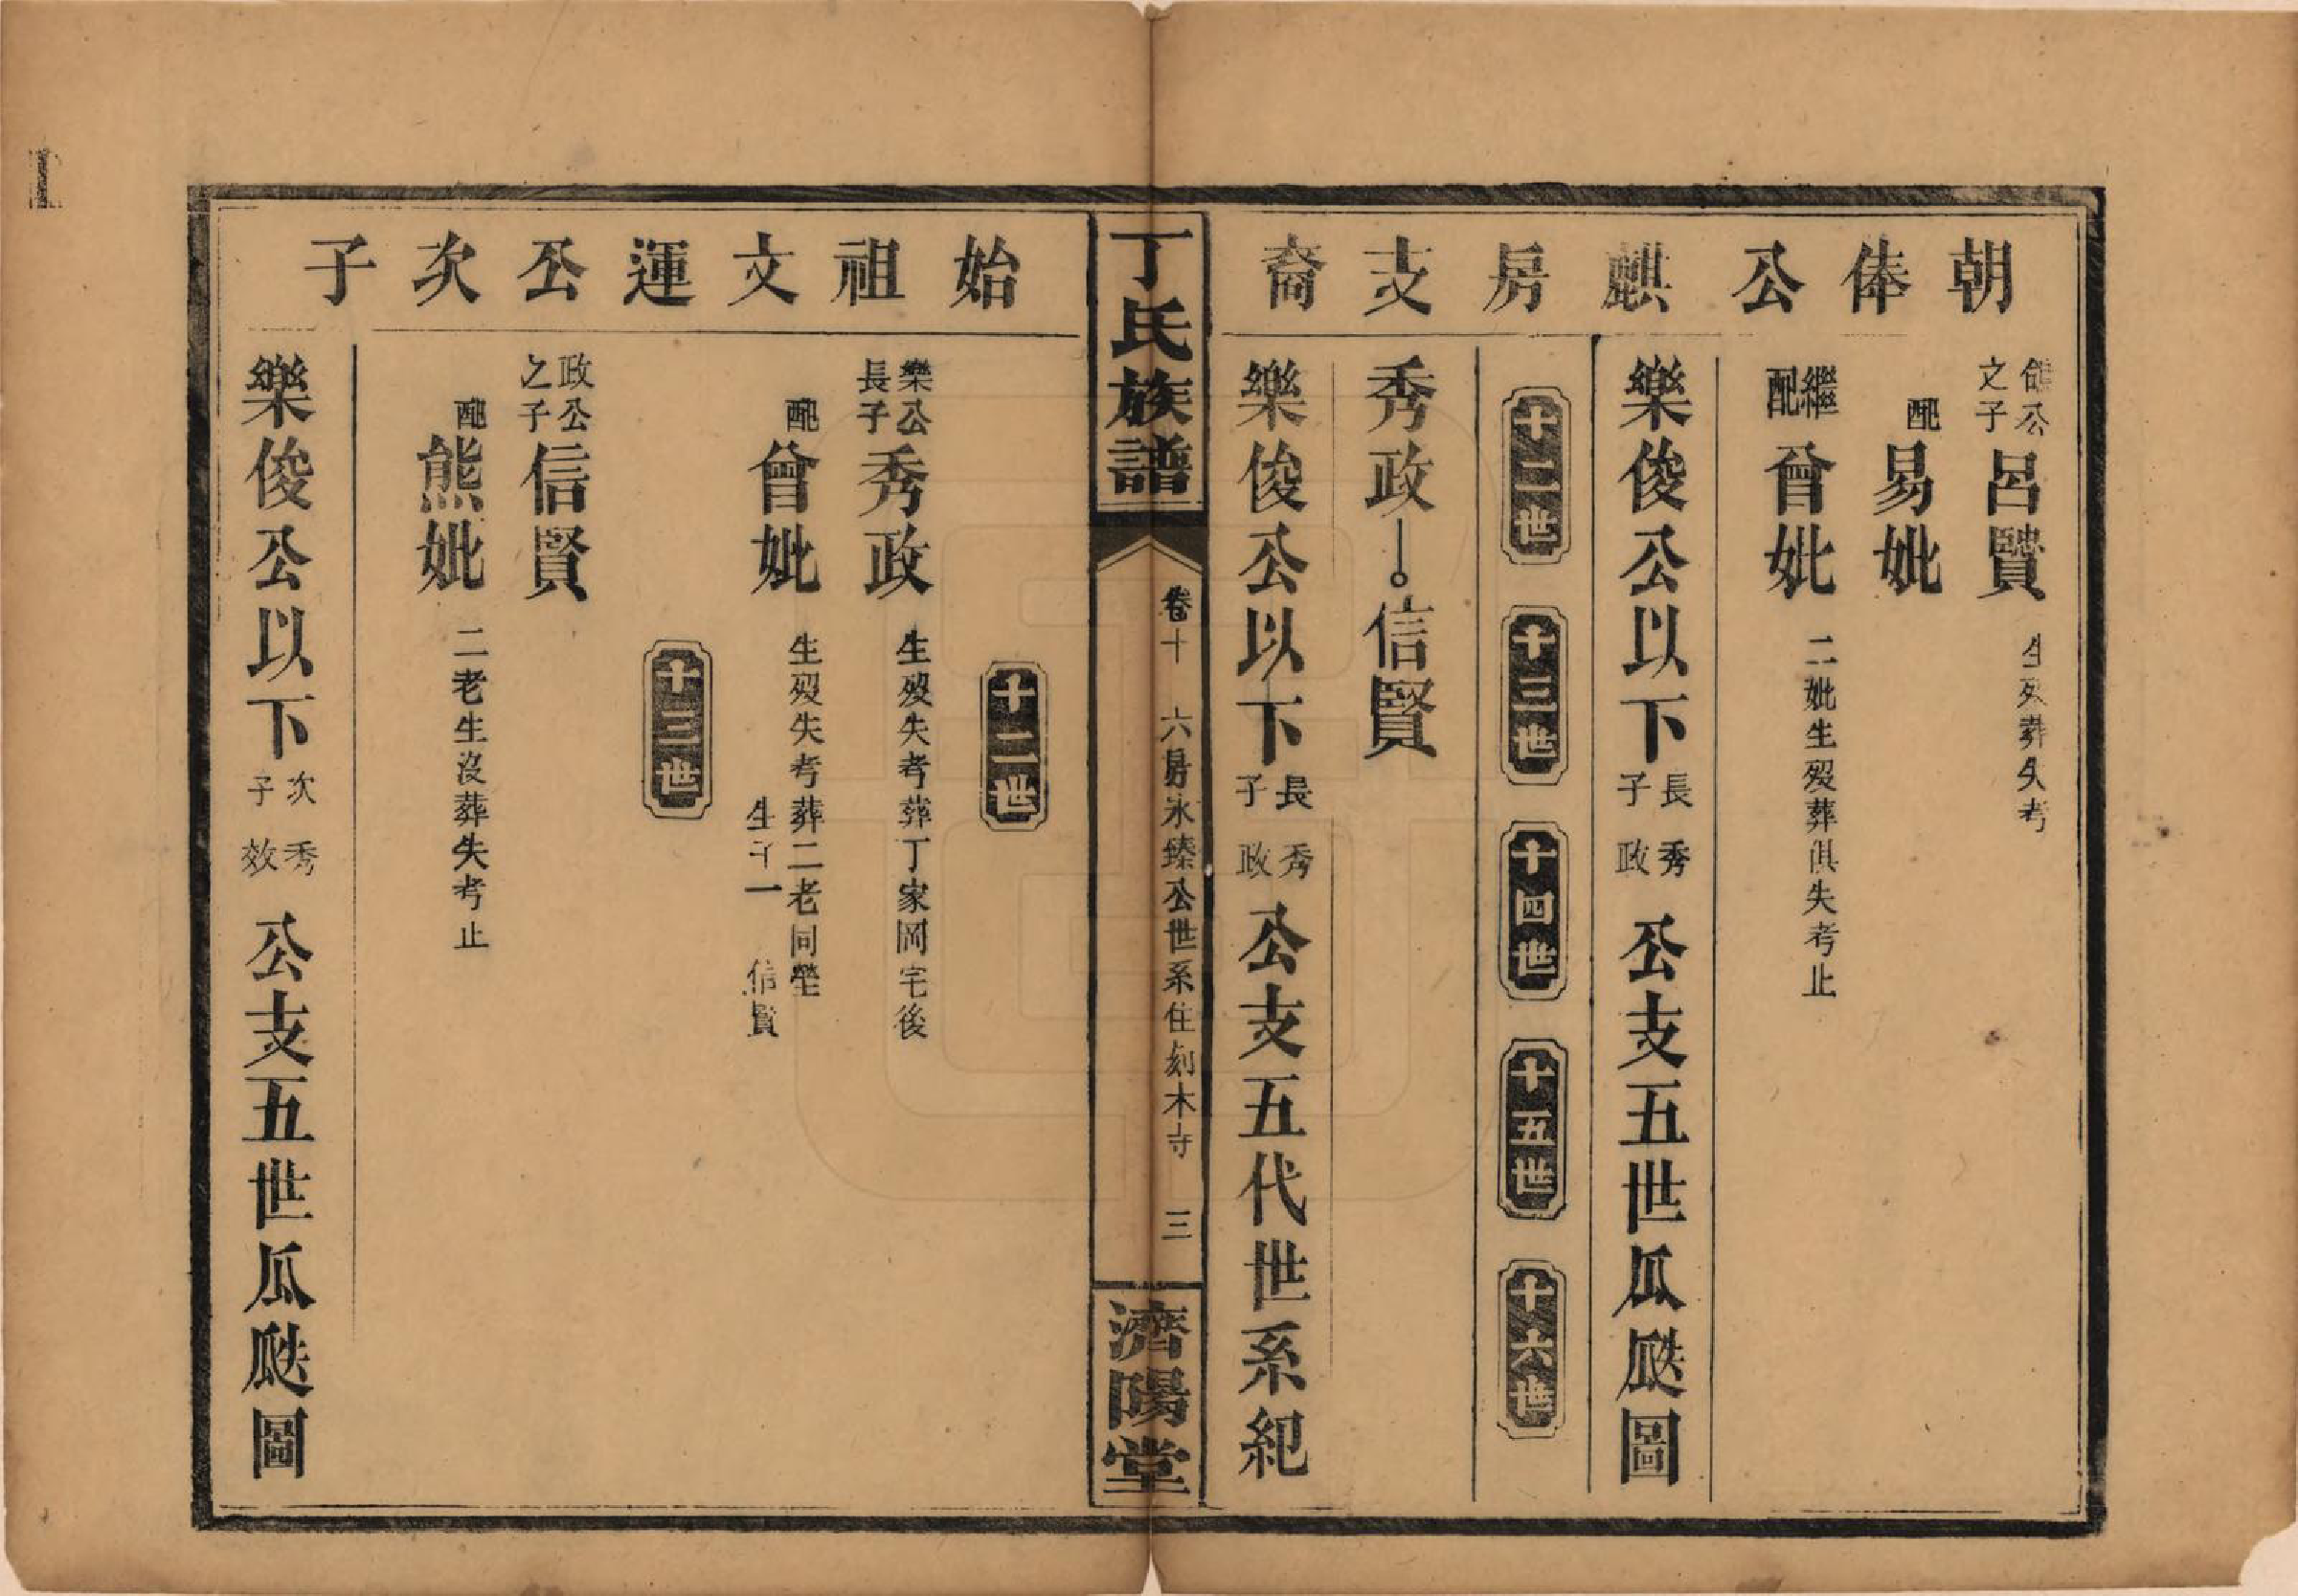 朝俸公麒房支裔
公之子呂賢 生歿葬失考
配易妣
繼配曾妣 二妣生歿葬俱失考止
樂俊公以下長子秀政公支五世瓜瓞圖
十二世 十三世 十四世 十五世 十六世
秀政 信賢
樂俊公以下長子秀政公支五代世系紀
丁氏族譜 卷十 六房永臻公世系住刻木寺 三 濟陽堂
始祖文運公次子
十二世
樂公長子秀政 生歿失考葬丁家岡宅後
配曾妣 生歿失考葬二老同塋
生子一 信賢
十三世
政公之子信賢
配熊妣 二老生沒葬失考止
樂俊公以下次子秀效公支五世瓜瓞圖